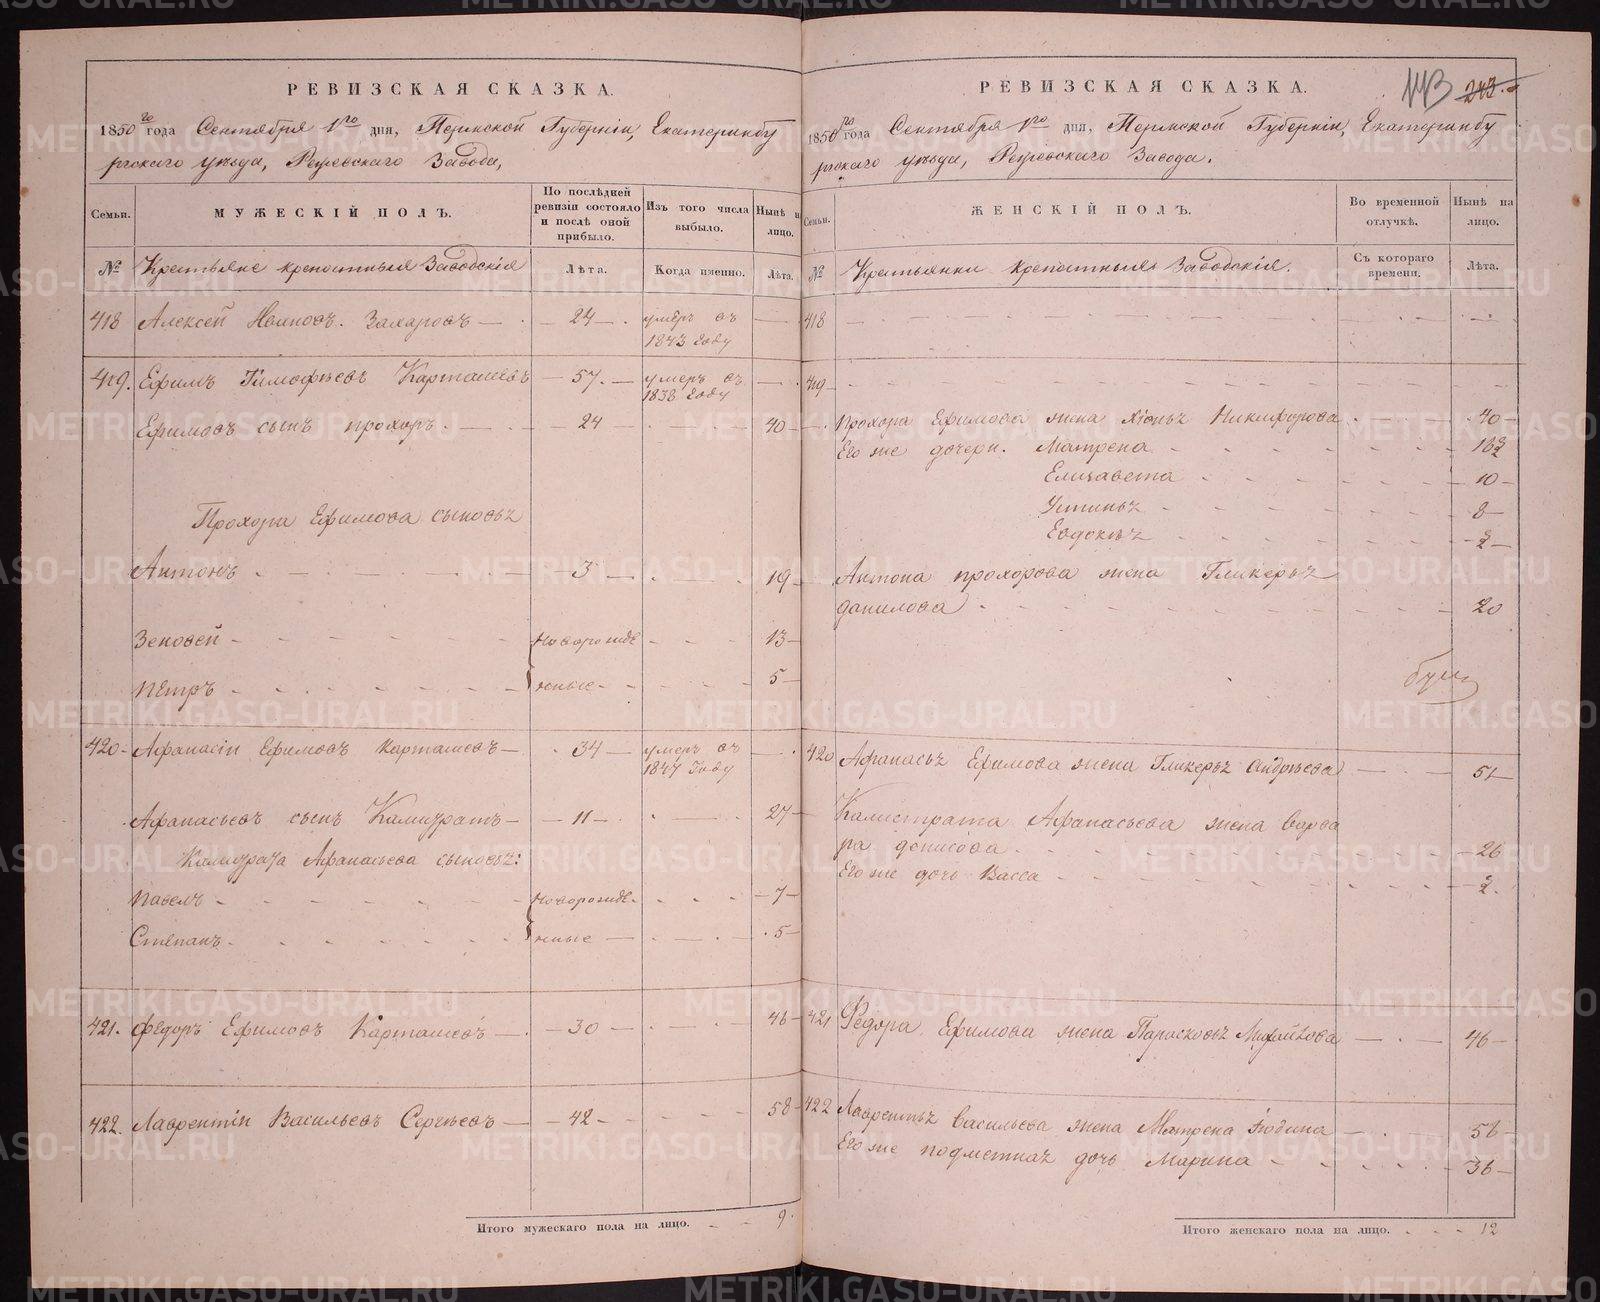 РЕВИЗСКАЯ СКАЗКА.
1850го года Сентября 1го дня, Пермской Губерніи, Екатеринбу
ргскаго уѣзда, Ревдевскаго Завода,
Семьи.
МУЖЕСКІЙ ПОЛЪ.
По послѣдней ревизіи состояло и послѣ оной прибыло.
Изъ того числа выбыло.
Нынѣ на лицо.
№ Крестьяне крепостныя Заводскія
Лѣта. Когда именно. Лѣта.
418 Алексѣй Ивановъ Захаровъ — 24 — умеръ въ
1843 году
419. Ефимъ Тимофѣевъ Карташевъ — 57. — умеръ въ
1838 году
Ефимовъ сынъ прохоръ. — 24 40
Прохора Ефимова сыновья
Антонъ — 3 — 19
Зеновей — новорожде 13
Пётръ — нные 5
420 Афанасіи Ефимовъ Карташевъ — 34 — умеръ въ
1847 Году
Афанасьевъ сынъ Калистратъ — 11 — 27
Калистрата Афанасьева сыновья:
Павелъ — новорожде 7
Степанъ — нные — 5
421. Федоръ Ефимовъ Карташевъ — 30 — 46
422. Лаврентіи Васильевъ Сергѣевъ — 42 — 58
Итого мужескаго пола на лицо. 9.
РЕВИЗСКАЯ СКАЗКА.
243.
1850го года Сентября 1го дня, Пермской Губерніи, Екатеринбу
ргскаго уѣзда, Ревдевскаго Завода.
Семьи.
ЖЕНСКІЙ ПОЛЪ.
Во временной отлучкѣ.
Нынѣ на лицо.
№ Крестьянки крепостныя Заводскія.
Съ котораго времени. Лѣта.
418
419
Прохора Ефимова жена Никифорова 40
Его же дочери. Матрена
Елизавета 10
Устинья 8
Евдокѣя 2
Антона прохорова жена Гликерья
данилова 20
420 Афанасья Ефимова жена Гликерья андрѣева 51
Калистрата Афанасьева жена варва
ра денисова 26
Его же дочь Васса 2
421 Федора Ефимова жена Парасковья 46
422 Лаврентья васильева жена Матрена 56
Его же дочь Марина 36
Итого женскаго пола на лицо. 12
METRIKI.GASO-URAL.RU